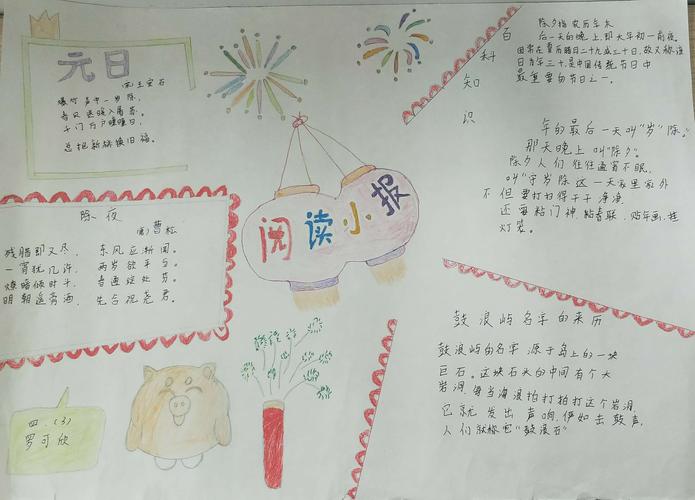 元日
(宋)王安石
爆竹声中一岁除,
春风送暖入屠苏。
千门万户曈曈日,
总把新桃换旧福。
除夜
(唐)曹松
残腊即又尽, 东风应渐闻。
一宵犹几许, 两岁欲平分。
燎暗倾时斗, 春通绽处芬。
明朝遥捧酒, 先合祝尧君。
四.(3)
罗可欣
阅读小报
百科知识
除夕指农历年末
后一天的晚上,即大年初一前夜。
因常在夏历腊月二十九或三十日,故又称该
日为年三十,是中国传统节日中
最重要的节日之一。
年的最后一天叫“岁”除。
那天晚上叫“除夕”。
除夕人们往往通宵不眠,
叫“守岁除这一天家里家外
不但要打扫得干干净净,
还要粘门神,贴春联,贴年画,挂
灯笼。
鼓浪屿名字的来历
鼓浪屿的名字源于岛上的一块
巨石。这块石头的中间有个大
岩洞,每当海浪拍打拍打这个岩洞,
它就发出声响,伊如击鼓声,
人们就称它“鼓浪石”